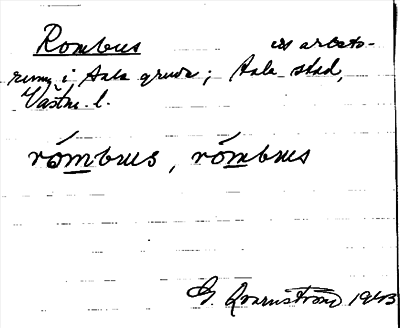 Rombus ett arbets-
rum i Sala gruva; Sala stad,
Västm. l.
rómbus, rómbus
G. Kvarnström 1943